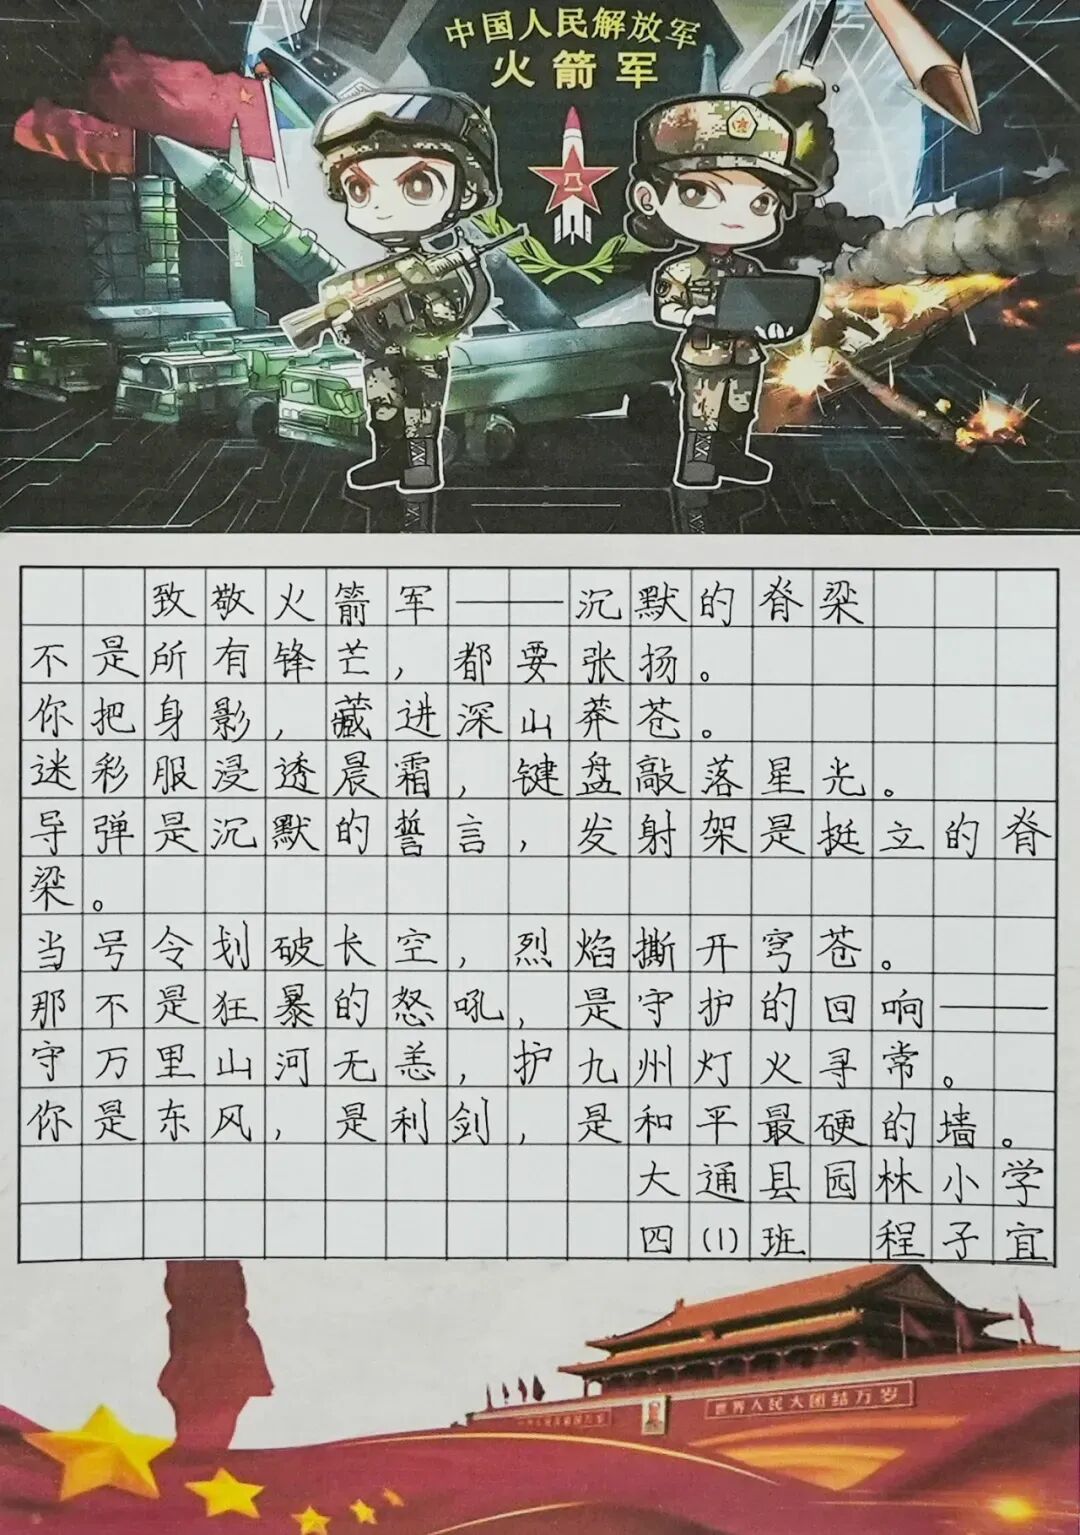 中国人民解放军
火箭军
致敬火箭军——沉默的脊梁
不是所有锋芒，都要张扬。
你把身影，藏进深山莽苍。
迷彩服浸透晨霜，键盘敲落星光。
导弹是沉默的誓言，发射架是挺立的脊
梁。
当号令划破长空，烈焰撕开穹苍。
那不是狂暴的怒吼，是守护的回响——
守万里山河无恙，护九州灯火寻常。
你是东风，是利剑，是和平最硬的墙。
大通县园林小学
四(1)班 程子宜
世界人民大团结万岁